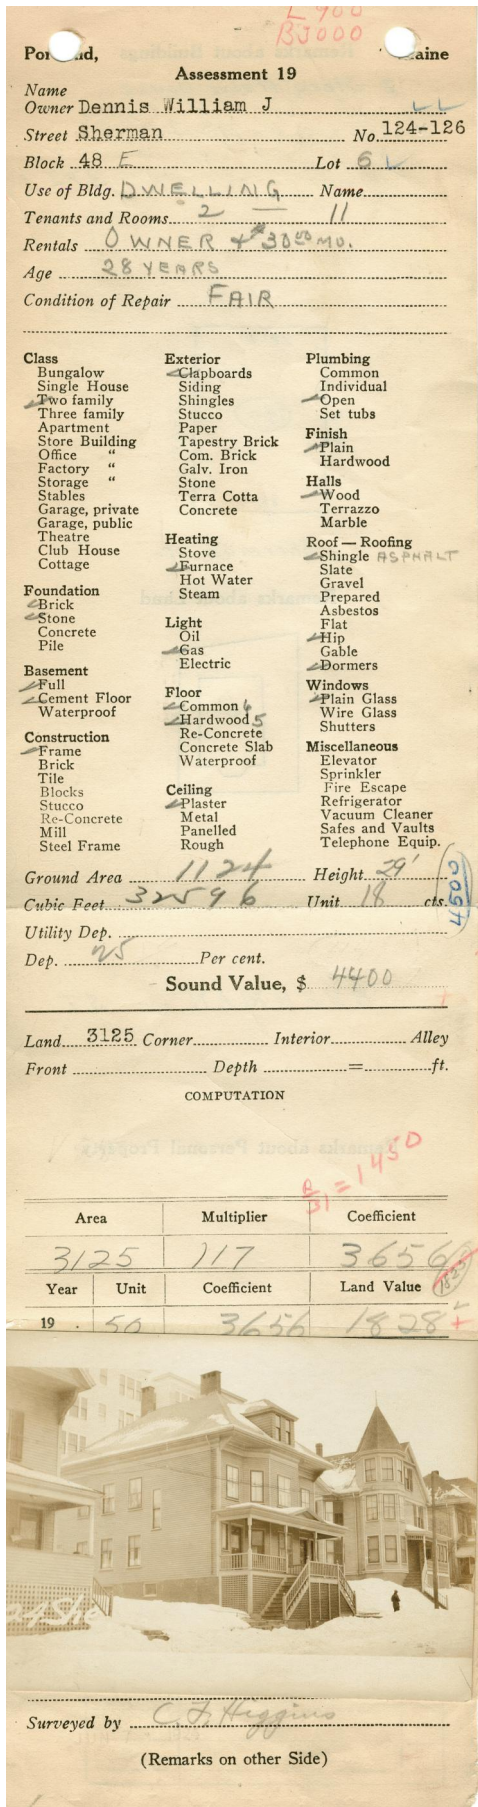 L 900
B 3000
Portland, Maine
Assessment 19
Name
Owner Dennis William J
Street Sherman No. 124-126
Block 48 E Lot 6
Use of Bldg. DWELLING Name
Tenants and Rooms 2 — 11
Rentals OWNER + $30.00 MO.
Age 28 YEARS
Condition of Repair FAIR
Class
Bungalow
Single House
Two family
Three family
Apartment
Store Building
Office "
Factory "
Storage "
Stables
Garage, private
Garage, public
Theatre
Club House
Cottage
Foundation
Brick
Stone
Concrete
Pile
Basement
Full
Cement Floor
Waterproof
Construction
Frame
Brick
Tile
Blocks
Stucco
Re-Concrete
Mill
Steel Frame
Exterior
Clapboards
Siding
Shingles
Stucco
Paper
Tapestry Brick
Com. Brick
Galv. Iron
Stone
Terra Cotta
Concrete
Heating
Stove
Furnace
Hot Water
Steam
Light
Oil
Gas
Electric
Floor
Common 6
Hardwood 5
Re-Concrete
Concrete Slab
Waterproof
Ceiling
Plaster
Metal
Panelled
Rough
Plumbing
Common
Individual
Open
Set tubs
Finish
Plain
Hardwood
Halls
Wood
Terrazzo
Marble
Roof — Roofing
Shingle ASPHALT
Slate
Gravel
Prepared
Asbestos
Flat
Hip
Gable
Dormers
Windows
Plain Glass
Wire Glass
Shutters
Miscellaneous
Elevator
Sprinkler
Fire Escape
Refrigerator
Vacuum Cleaner
Safes and Vaults
Telephone Equip.
Ground Area 1124 Height 29'
Cubic Feet 32596 Unit 18 cts.
4500
Utility Dep.
Dep. 25 Per cent.
Sound Value, $ 4400
Land 3125 Corner Interior Alley
Front Depth = ft.
COMPUTATION
B/31 = 1450
Area Multiplier Coefficient
3125 117 3656
Year Unit Coefficient Land Value 1825
19 . 50 3656 1828
24 She
Surveyed by C. F. Higgins
(Remarks on other Side)